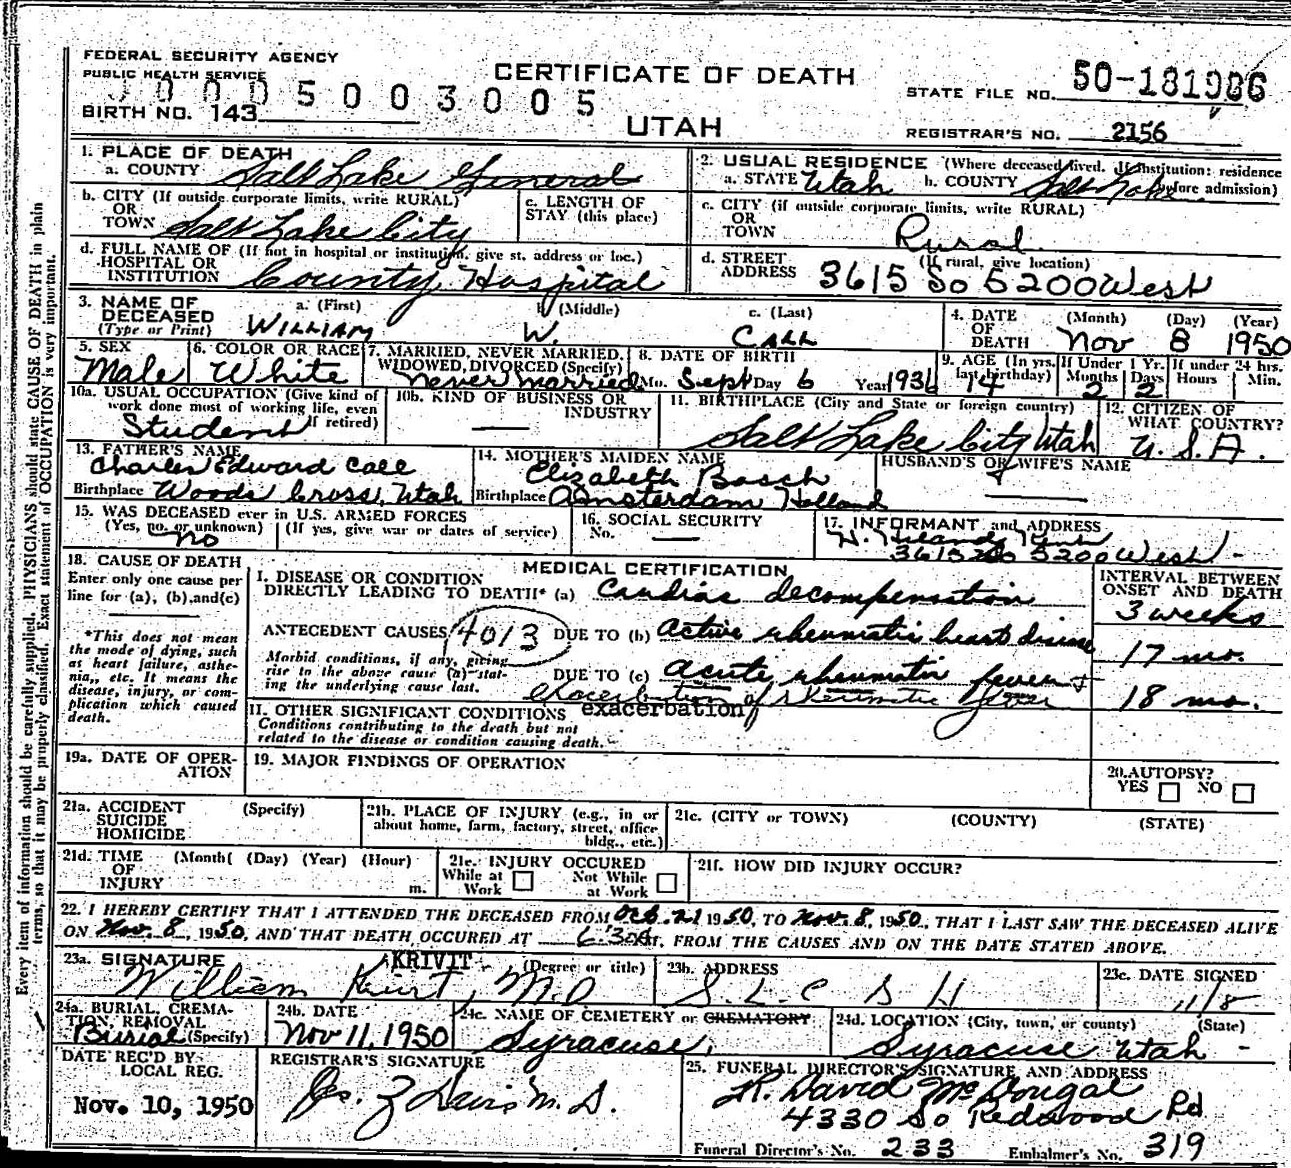 FEDERAL SECURITY AGENCY
PUBLIC HEALTH SERVICE
CERTIFICATE OF DEATH
STATE FILE NO. 50-181986
0005003005
BIRTH NO. 143
UTAH
REGISTRAR'S NO. 2156
1. PLACE OF DEATH
a. COUNTY Salt Lake General
2. USUAL RESIDENCE (Where deceased lived. If institution: residence before admission)
a. STATE Utah b. COUNTY Salt Lake
b. CITY (If outside corporate limits, write RURAL)
OR
TOWN Salt Lake City
c. LENGTH OF
STAY (this place)
c. CITY (if outside corporate limits, write RURAL)
OR
TOWN Rural
d. FULL NAME OF (If not in hospital or institution, give st. address or loc.)
HOSPITAL OR
INSTITUTION County Hospital
d. STREET (If rural, give location)
ADDRESS 3615 So 5200 West
3. NAME OF
DECEASED
(Type or Print)
a. (First) WILLIAM
b. (Middle) W.
c. (Last) CALL
4. DATE
OF
DEATH
(Month) (Day) (Year)
Nov 8 1950
5. SEX
Male
6. COLOR OR RACE
White
7. MARRIED, NEVER MARRIED,
WIDOWED, DIVORCED (Specify)
Never married
8. DATE OF BIRTH
Mo. Sept Day 6 Year 1936
9. AGE (In yrs. last birthday) 14
If Under 1 Yr.
Months 2 Days 2
If under 24 hrs.
Hours Min.
10a. USUAL OCCUPATION (Give kind of
work done most of working life, even
if retired) Student
10b. KIND OF BUSINESS OR
INDUSTRY —
11. BIRTHPLACE (City and State or foreign country)
Salt Lake City Utah
12. CITIZEN OF
WHAT COUNTRY?
U.S.A.
13. FATHER'S NAME
Charles Edward Call
Birthplace Woods Cross, Utah
14. MOTHER'S MAIDEN NAME
Elizabeth Bosch
Birthplace Amsterdam Holland
HUSBAND'S OR WIFE'S NAME
—
15. WAS DECEASED ever in U.S. ARMED FORCES
(Yes, no, or unknown) (If yes, give war or dates of service)
no
16. SOCIAL SECURITY
No. —
17. INFORMANT and ADDRESS
3615 So 5200 West
18. CAUSE OF DEATH
Enter only one cause per
line for (a), (b), and (c)
*This does not mean
the mode of dying, such
as heart failure, asthe-
nia, etc. It means the
disease, injury, or com-
plication which caused
death.
MEDICAL CERTIFICATION
I. DISEASE OR CONDITION
DIRECTLY LEADING TO DEATH* (a) Cardiac decompensation
ANTECEDENT CAUSES 4013 DUE TO (b) Active rheumatic heart disease
Morbid conditions, if any, giving
rise to the above cause (a) stat-
ing the underlying cause last.
DUE TO (c) Acute rheumatic fever +
exacerbation of rheumatic fever
exacerbation
II. OTHER SIGNIFICANT CONDITIONS
Conditions contributing to the death but not
related to the disease or condition causing death.
INTERVAL BETWEEN
ONSET AND DEATH
3 weeks
17 mo.
18 mo.
19a. DATE OF OPER-
ATION
19. MAJOR FINDINGS OF OPERATION
20. AUTOPSY?
YES NO
21a. ACCIDENT (Specify)
SUICIDE
HOMICIDE
21b. PLACE OF INJURY (e.g., in or
about home, farm, factory, street, office
bldg., etc.)
21c. (CITY or TOWN) (COUNTY) (STATE)
21d. TIME (Month) (Day) (Year) (Hour)
OF
INJURY m.
21e. INJURY OCCURED
While at Work Not While at Work
21f. HOW DID INJURY OCCUR?
22. I HEREBY CERTIFY THAT I ATTENDED THE DECEASED FROM Oct. 21 1950, TO Nov. 8, 1950, THAT I LAST SAW THE DECEASED ALIVE
ON Nov. 8, 1950, AND THAT DEATH OCCURED AT 6:30 M, FROM THE CAUSES AND ON THE DATE STATED ABOVE.
23a. SIGNATURE (Degree or title)
KRIVIT
William Krivit, M.D
23b. ADDRESS
S. L. C G H
23c. DATE SIGNED
11/8
24a. BURIAL, CREMA-
TION, REMOVAL
Burial (Specify)
24b. DATE
Nov 11, 1950
24c. NAME OF CEMETERY or CREMATORY
Syracuse,
24d. LOCATION (City, town, or county) (State)
Syracuse Utah
DATE REC'D BY
LOCAL REG.
Nov. 10, 1950
REGISTRAR'S SIGNATURE
M.D.
25. FUNERAL DIRECTOR'S SIGNATURE AND ADDRESS
R. David McDougal
4330 So Redwood Rd
Funeral Director's No. 233 Embalmer's No. 319
Every item of information should be carefully supplied. PHYSICIANS should state CAUSE OF DEATH in plain
terms, so that it may be properly classified. Exact statement of OCCUPATION is very important.